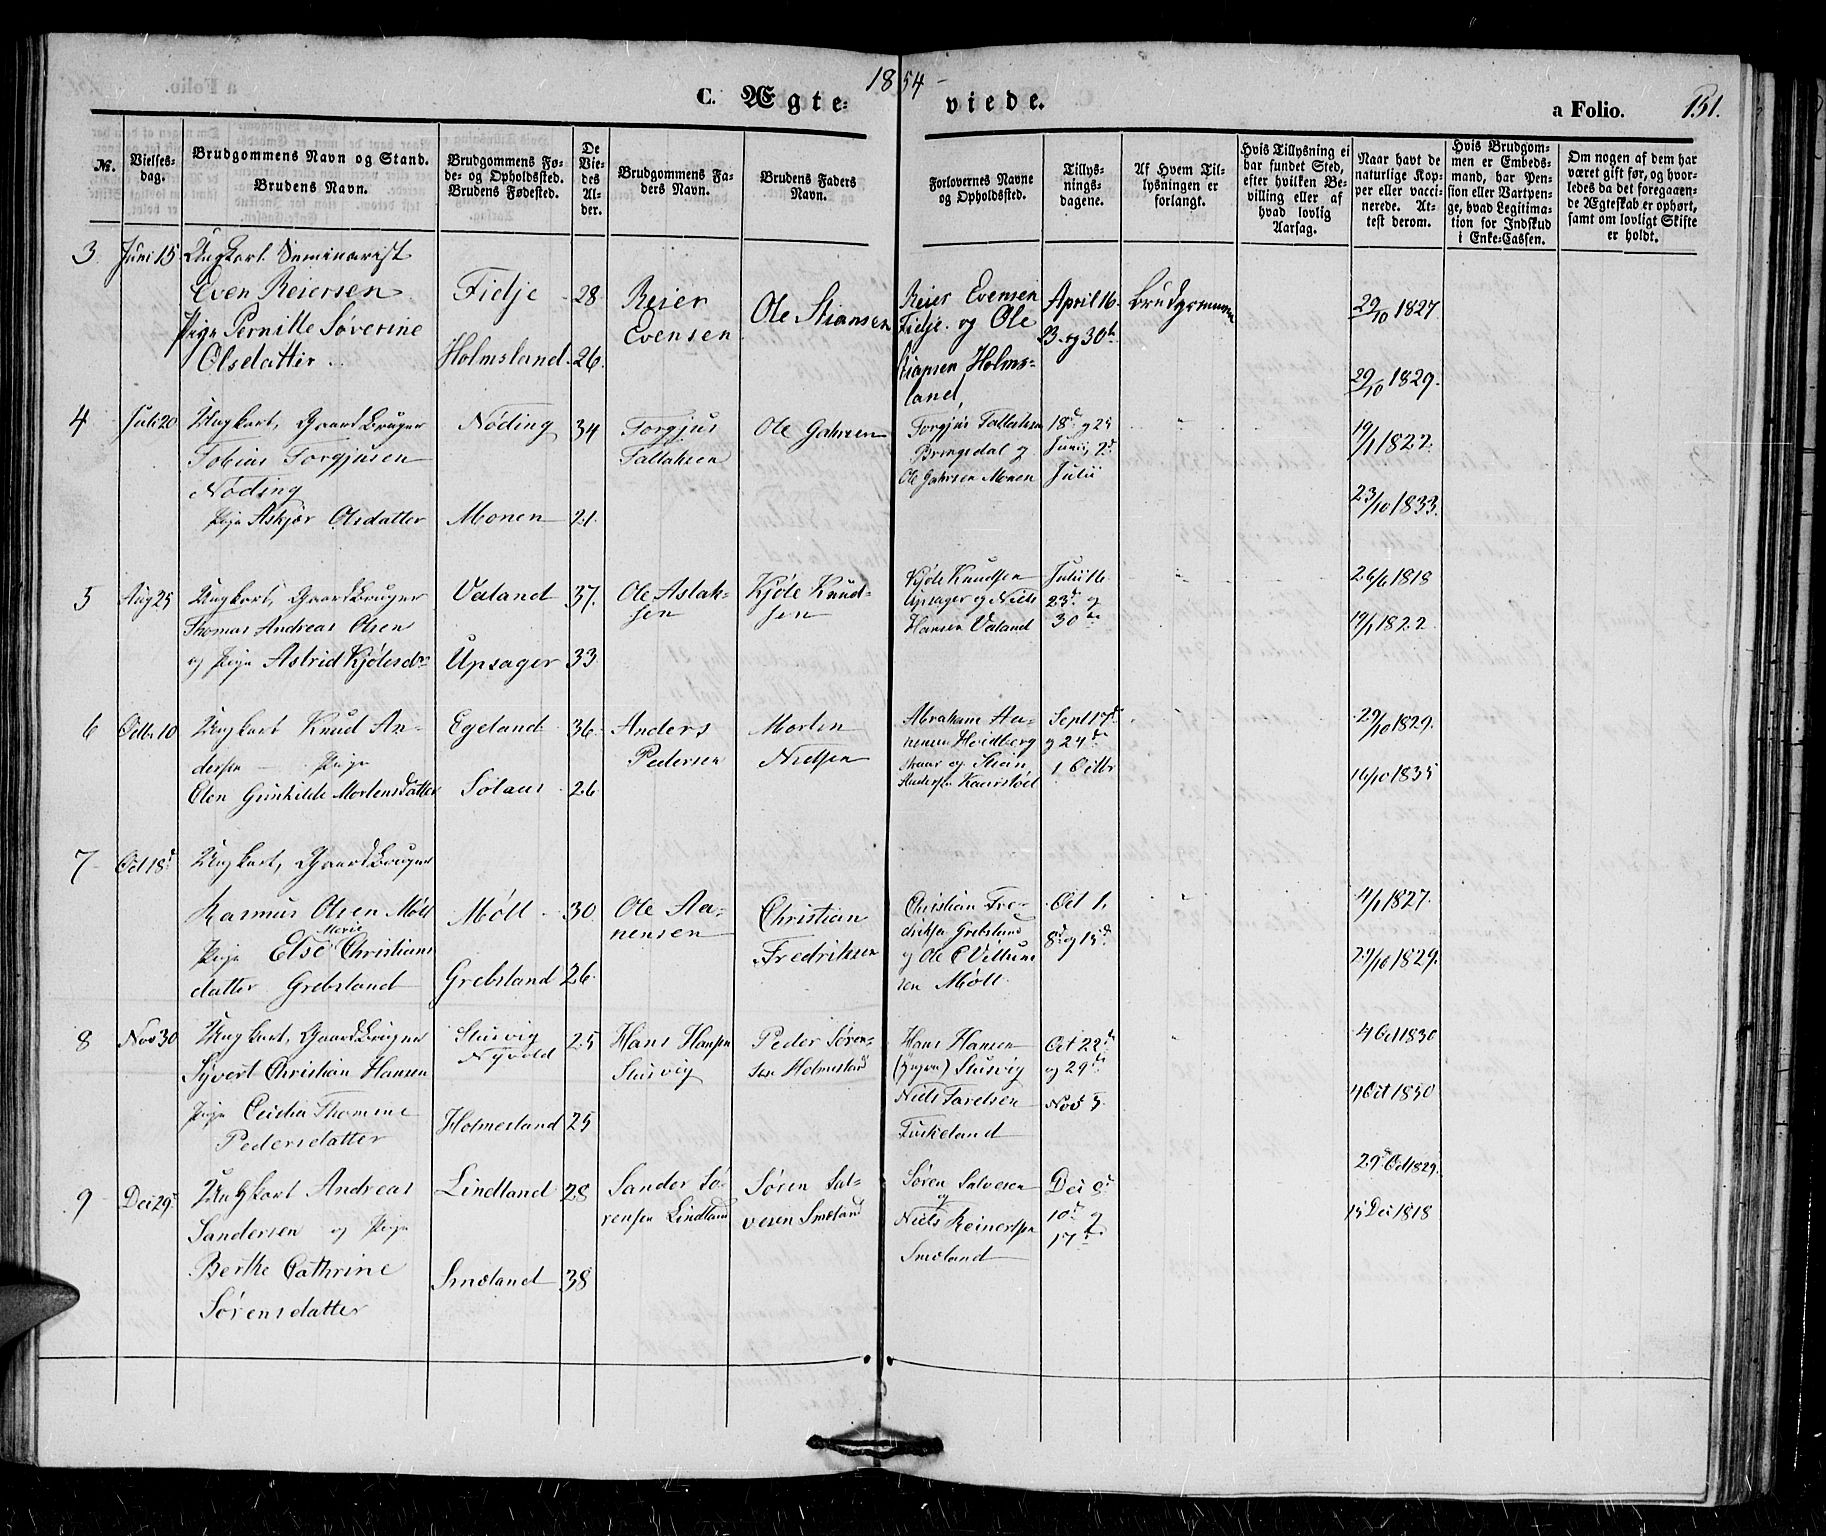 1854
C. Ægte-viede.
a Folio. 151.
№.
Vielses-dag.
Brudgommens Navn og Stand.
Brudens Navn.
Brudgommens Fø-
de- og Opholdssted.
Brudens Fødested.
De
Vie-
des
Al-
der.
Brudgommens Fa-
ders Navn.
Brudens Faders
Navn.
Forlovernes Navne
og Opholdssted.
Tillys-
nings-
dagene.
Af Hvem Til-
lysningen er
forlangt.
Hvis Tillysning ei
har fundet Sted,
efter hvilken Be-
villing eller af
hvad lovlig
Aarsag.
Naar havt de
naturlige Kop-
per eller vacci-
nerede. At-
test derom.
Hvis Brudgom-
men er Embeds-
mand, har Pen-
sion eller Vartpen-
ge, hvad Legitima-
tion for Indskud
i Enke-Cassen.
Om nogen af dem har
været gift før, og hvor-
ledes da det foregaaen-
de Ægteskab er ophørt,
samt om lovligt Skifte
er holdt.
3 Juni 15 Ungkarl Seminarist
Even Reiersen Fidje 28 Reier Evensen Ole Stiansen
Pige Pernille Søverine
Olsdatter Holmsland 26
Reier Evensen
Fidje og Ole
Stiansen Holms-
land
April 16
23 og 30te
Brudgommen
29/10 1827
29/10 1829
4 Juli 20 Ungkarl, Gaardbruger
Tobias Torgjusen
Nøding
Nøding 34 Torgjus
Tallaksen
Ole Gahrsen
Pige Askjær Olsdatter Monen 21
Torgjus Tallaksen
Bringsdal og
Ole Gahrsen Monen
18d og 25
Junii, 2d
Julii
19/1 1822
23/10 1833
5 Aug 25 Ungkarl, Gaardbruger
Thomas Andreas Olsen
og Pige Astrid Kjølesdr
Valand 37
Upsager 33
Ole Aslak-
sen
Kjøle Knud-
sen
Kjøle Knudsen
Upsager og Niels
Hansen Valand
Julii 16
23d og
30te
26/6 1818
19/1 1822
6 Octbr 10 Ungkarl Knud An-
dersen – Pige
Olen Gunhilde Mortensdatter
Egeland 36
Solaas 26
Anders
Pedersen
Morten
Nielsen
Abraham Aa-
nensen Heidberg
Skaar og Stian
Andersen Kaurstøel
Sept 17d
og 24d
1 Octbr
29/10 1829
16/10 1835
7 Oct 18d Ungkarl, Gaardbruger
Rasmus Olsen Møll
Pige Else Marie Christians
datter Grebsland
Møll 30
Grebsland 26
Ole Aa-
nensen
Christian
Fredriksen
Christian Fre-
driksen Grebsland
og Ole
sen Møll
Oct 1,
8d og 15d
4/1 1827
29/10 1829
8 Nov 30 Ungkarl, Gaardbruger
Syvert Christian Hansen
Pige Cecilia Thomine
Pedersdatter
Stusvig
Nyvold 25
Holmesland 25
Hans Hansen
Stusvig
Peder Søren-
sen Holmesland
Hans Hansen
(yngre) Stusvig
Niels Tarelsen
Fuskeland
Oct 22d
og 29d
Nov 5
4 Oct 1830
4 Oct 1830
9 Dec 29d Ungkarl Andreas
Sandersen og Pige
Berthe Cathrine
Sørensdatter
Lindland 28
Smeland 38
Sander Sø-
rensen Lindland
Søren Sal-
vesen Smeland
Søren Salvesen
og
Niels Reinertsen
Smeland
Dec 8d
10d og
17de
29d Oct 1829
15 Dec 1818